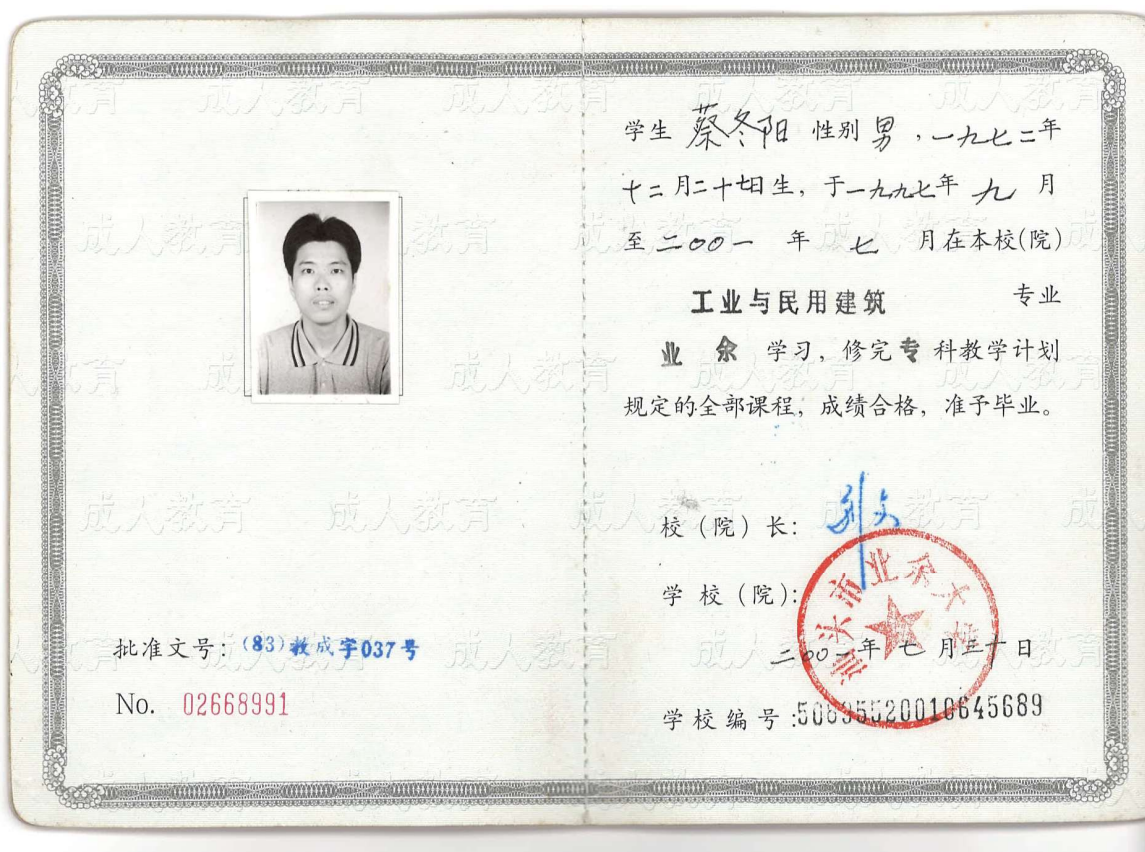 批准文号：(83)教成字037号
No. 02668991
学生 蔡冬阳 性别 男，一九七二年
十二月二十七日生，于一九九七年 九 月
至二〇〇一 年 七 月在本校(院)
工业与民用建筑 专业
业余 学习，修完专科教学计划
规定的全部课程，成绩合格，准予毕业。
校（院）长：
学校（院）：
汕头市业余大学
二〇〇一年 七 月三十日
学校编号：50895520010645689
成人教育